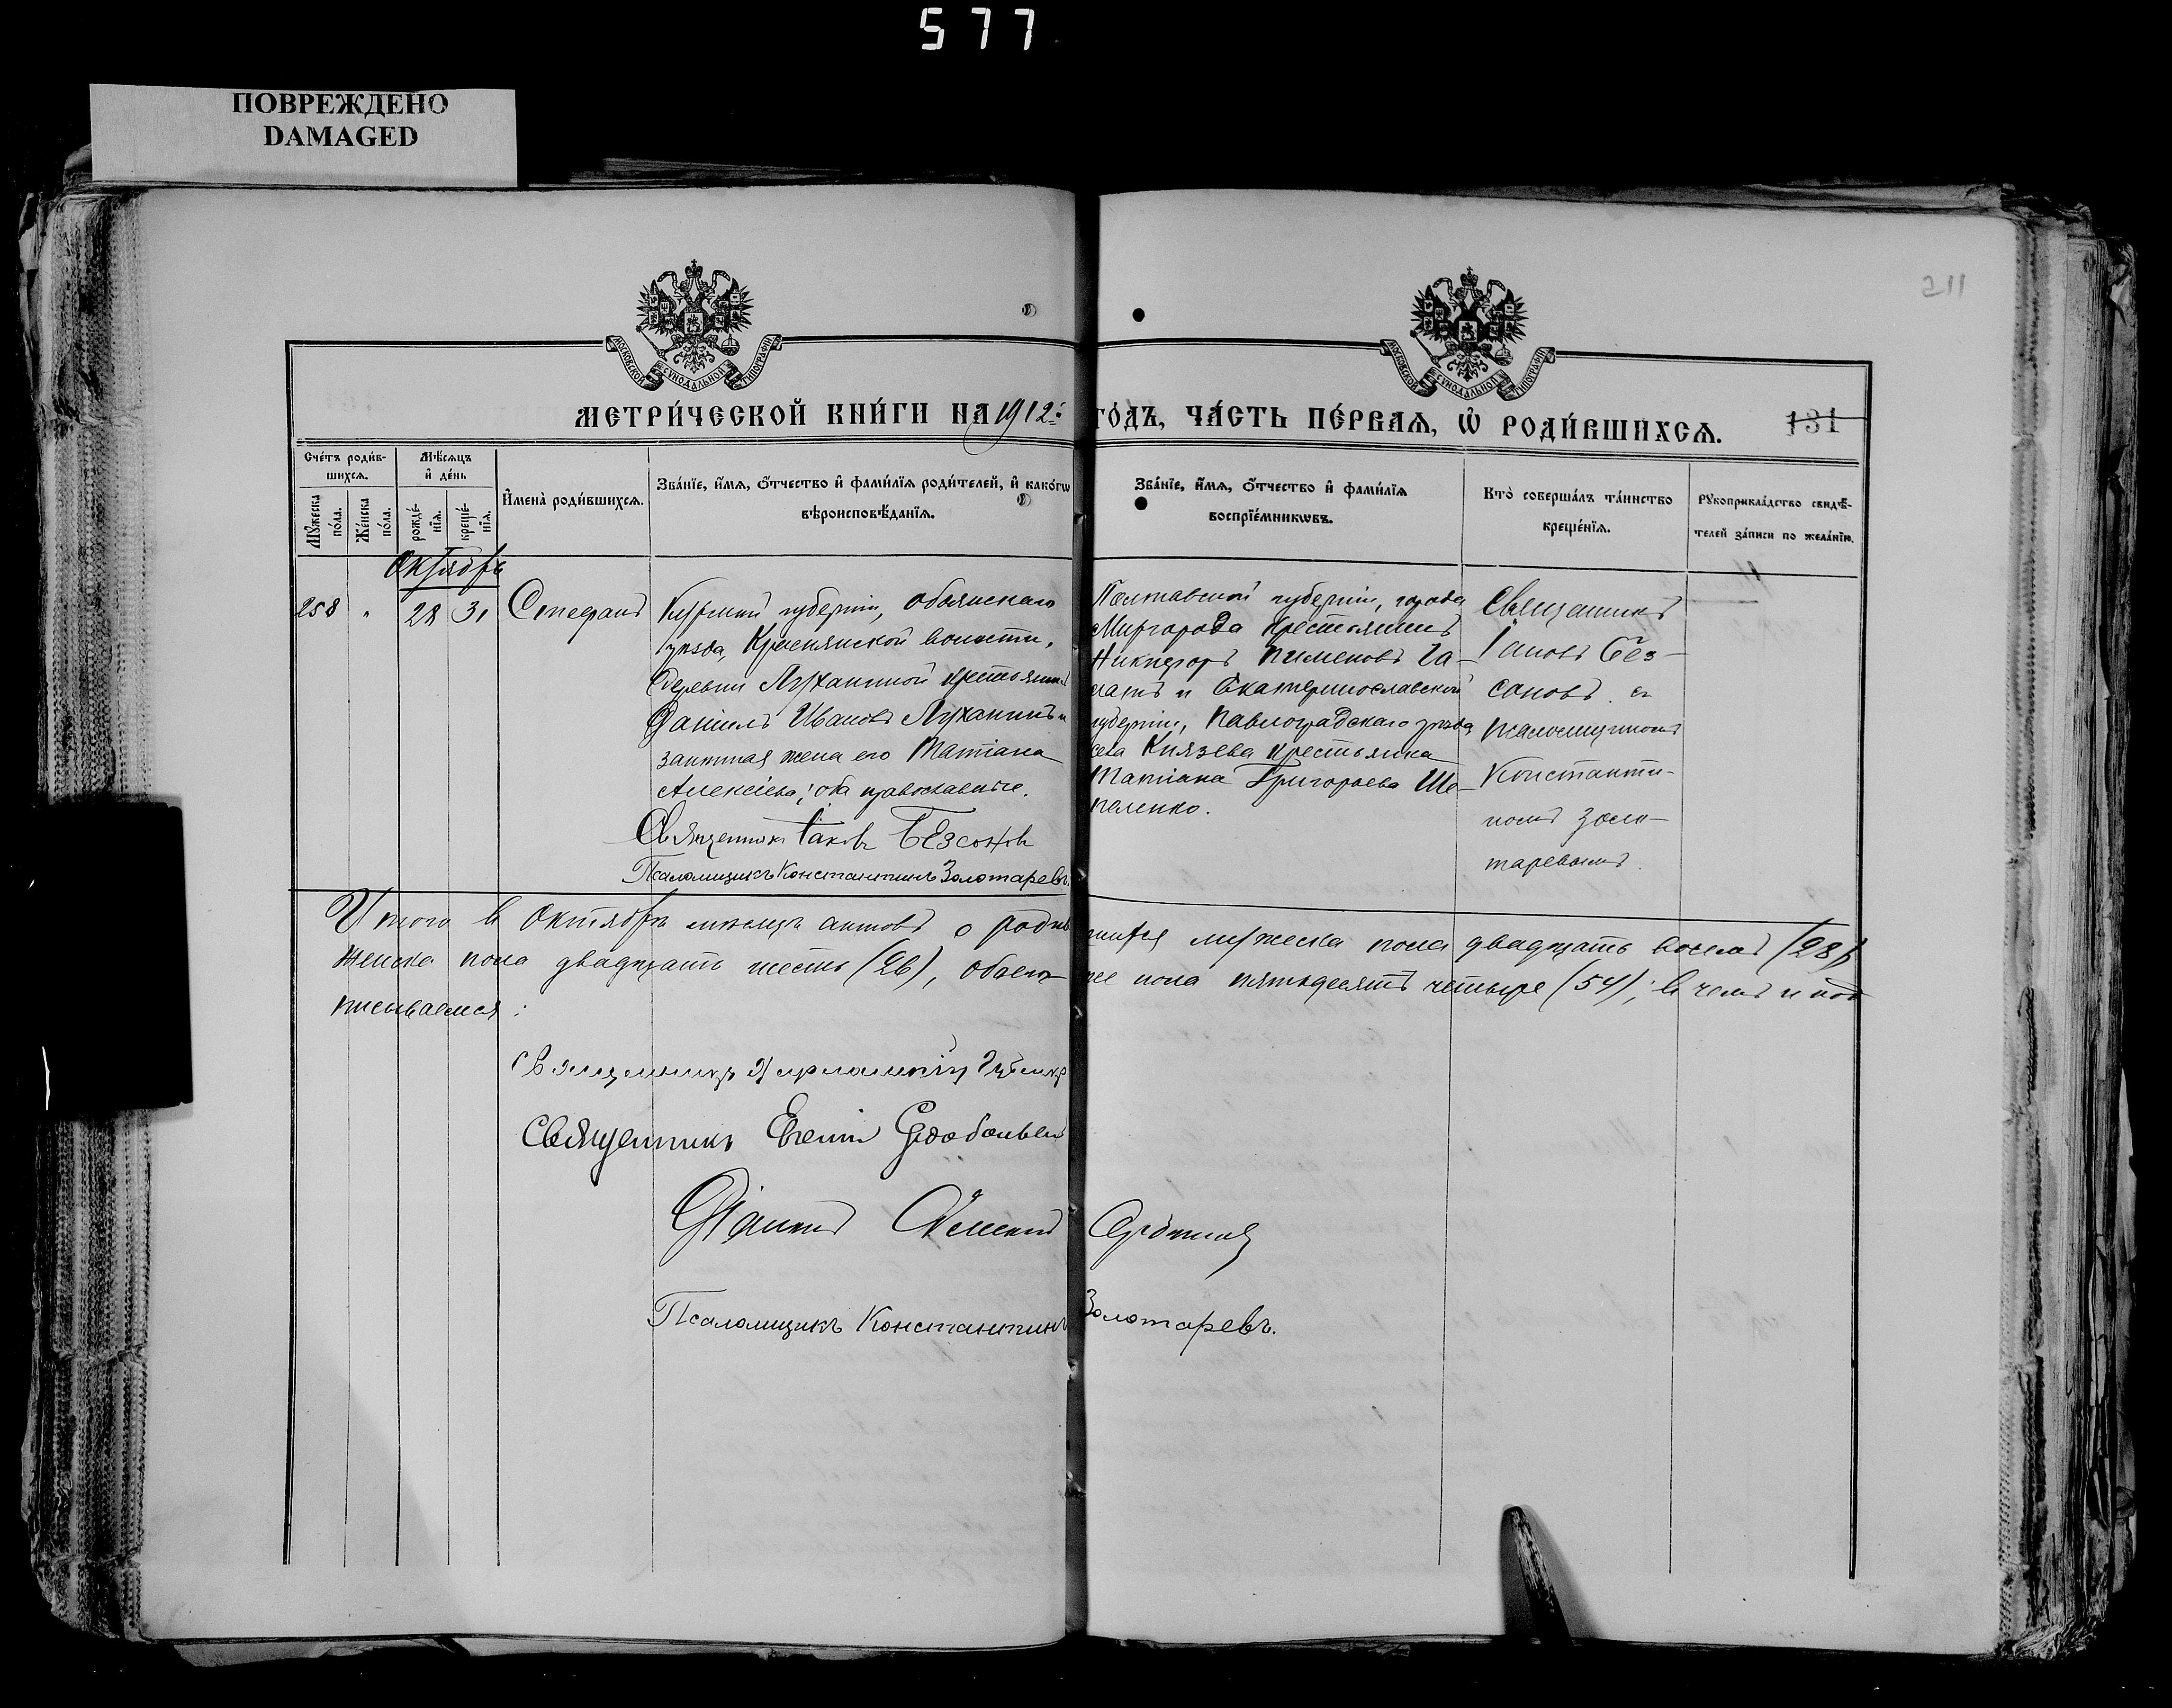 577
ПОВРЕЖДЕНО
DAMAGED
211
МОСКОВСКОЙ СѴНОДАЛЬНОЙ ТИПОГРАФІИ
МОСКОВСКОЙ СѴНОДАЛЬНОЙ ТИПОГРАФІИ
МЕТРИ́ЧЕСКОЙ КНИ́ГИ НА 1912 й ГО́ДЪ, ЧА́СТЬ ПЕ́РВАѦ, Ѡ҆ РОДИ́ВШИХСѦ.
131
Сче́тъ роди́в-
шихсѧ.
Мꙋ́жеска по́ла.
Же́нска по́ла.
Мѣ́сѧцъ
и҆ де́нь
рожде́-
нїѧ.
креще́-
нїѧ.
И҆мена̀ роди́вшихсѧ.
Зва́нїе, и҆́мѧ, ѻ҆́тчество и҆ фами́лїѧ роди́телей, и҆ како́гѡ
вѣроисповѣ́данїѧ.
Зва́нїе, и҆́мѧ, ѻ҆́тчество и҆ фами́лїѧ
воспрїе́мникѡвъ.
Кто̀ соверша́лъ та́инство
креще́нїѧ.
Рꙋкоприкла́дство свидѣ́-
телей за́писи по жела́нїю.
Октябрь
258 " 28 31 Стефанъ
Курской губерніи, Обоянскаго
уѣзда, Краснянской волости,
деревни Луханиной крестьянинъ
Даніилъ Ивановъ Луханинъ и
законная жена его Татіана
Алексіева; оба православные.
Священникъ Іаковъ Безсоновъ
Псаломщикъ Константинъ Золотаревъ.
Полтавской губерніи, города
Миргорода крестьянинъ
Никифоръ Пименовъ Га-
и Екатеринославской
губерніи, Павлоградскаго уѣзда
села Князева крестьянка
Татіана Григорьева Ше-
паленко.
Священникъ
Іаковъ Без-
соновъ съ
псаломщикомъ
Константи-
номъ Золо-
таревымъ.
Итого въ Октябрѣ мѣсяцѣ актовъ о родившихся мужеска пола двадцать восемь (28),
женска пола двадцать шесть (26), обоего же пола пятьдесятъ четыре (54); въ чемъ и под-
писываемся:
Священникъ
Священникъ Евгеній
Діаконъ Алексій
Псаломщикъ Константинъ Золотаревъ.